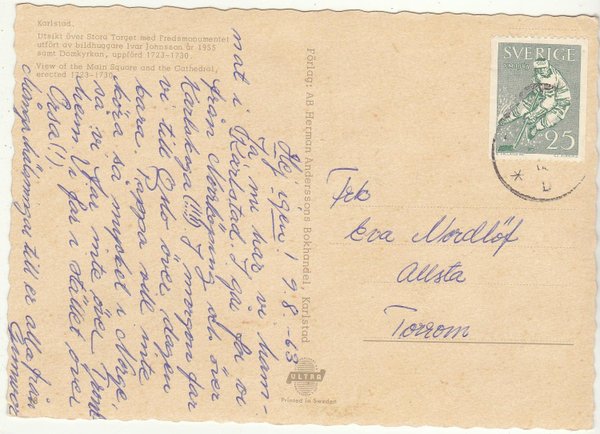 Karlstad.
Utsikt över Stora Torget med Fredsmonumentet
utfört av bildhuggare Ivar Johnsson år 1955
samt Domkyrkan, uppförd 1723-1730.
View of the Main Square and the Cathedral,
erected 1723-1730.
Hej igen! 9.8.-63
Ja, nu har vi ham-
nat i Karlstad. I går for vi
från Norrköping och över
Karlskoga (!!!!) I morgon far
vi till Oslo över dagen
bara. Pappa ville inte
köra så mycket i Norge,
så vi far inte över
hem. Vi far i stället över
Orsa(!)
Kämpahälsningar till er alla från
Gunvor
Förlag: AB Herman Anderssons Bokhandel, Karlstad
ULTRA
Printed in Sweden
SVERIGE
25
Frk
Eva Nordlöf
Allsta
Torrom